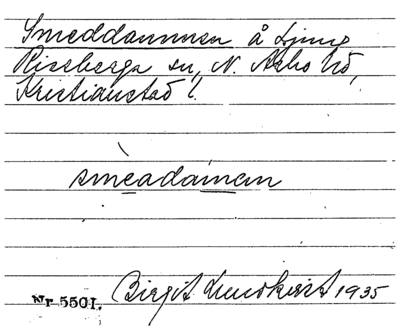 Smeddammen å Ljung
Riseberga sn, N. Åsbo hd,
Kristianstad l.
smèadamen
Nr 5501. Birgit Lundkvist 1935